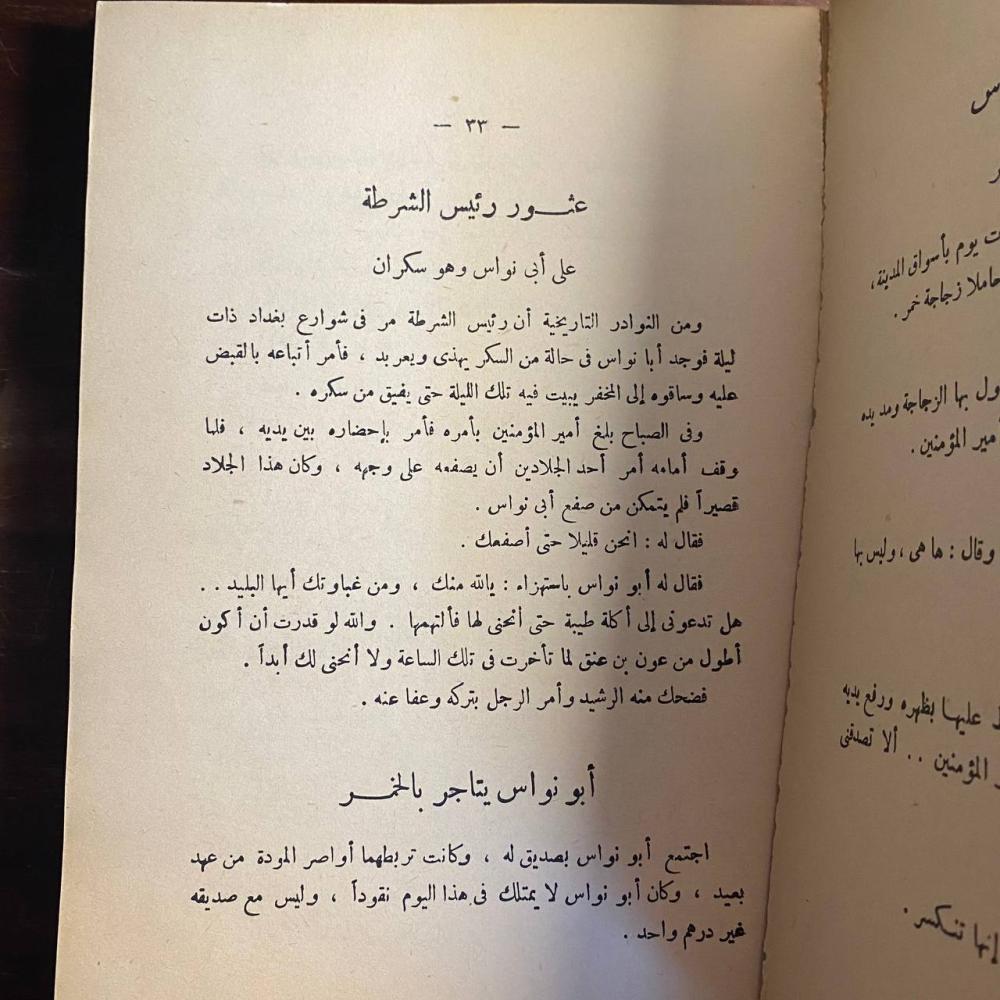 — ٣٣ —
عثور رئيس الشرطة
على أبى نواس وهو سكران
ومن النوادر التاريخية أن رئيس الشرطة مر فى شوارع بغداد ذات
ليلة فوجد أبا نواس فى حالة من السكر يهذى ويعربد ، فأمر أتباعه بالقبض
عليه وساقوه إلى المخفر يبيت فيه تلك الليلة حتى يفيق من سكره .
وفى الصباح بلغ أمير المؤمنين بأمره فأمر بإحضاره بين يديه ، فلما
وقف أمامه أمر أحد الجلادين أن يصفعه على وجهه ، وكان هذا الجلاد
قصيراً فلم يتمكن من صفع أبى نواس .
فقال له : انحن قليلا حتى أصفعك .
فقال له أبو نواس باستهزاء : يالله منك ، ومن غباوتك أيها البليد . .
هل تدعونى إلى أكلة طيبة حتى أنحنى لها فألتهمها . والله لو قدرت أن أكون
أطول من عون بن عنق لما تأخرت فى تلك الساعة ولا أنحنى لك أبداً .
فضحك منه الرشيد وأمر الرجل بتركه وعفا عنه .
أبو نواس يتاجر بالخمر
اجتمع أبو نواس بصديق له ، وكانت تربطهما أواصر المودة من عهد
بعيد ، وكان أبو نواس لا يمتلك فى هذا اليوم نقوداً ، وليس مع صديقه
غير درهم واحد .
يوم بأسواق المدينة ،
حاملا زجاجة خمر .
بها الزجاجة ومد يده
المؤمنين .
وقال : ها هى ، وليس بها
عليها بظهره ورفع يديه
المؤمنين . . ألا تصدقنى
إنها تنكسر .